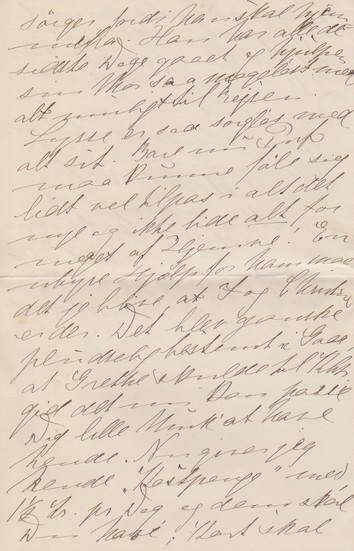 sørger fordi han skal hjem
Han har alle de
sidste Dage gaaet og hjulpen
sin Mor saa mageløst med
alt muligt til Rejsen.
Lysse er saa sørgløs med
alt sit. Bare nu
maa kunne føle sig
lidt vel tilpas i alt det
nye og ikke lide alt for
meget af Hjemve! En
uhyre Hjælp for ham maa
det jo blive at I og Christine
er der. Det blev ganske
pludselig bestemt i Gaar,
at Grethe skulde til
gid det nu kan passe
Dig lille at have
hende. Nu giver jeg
hende "Kostpenge" med
1½ Kr. pr Dag og dem skal
Du have! Kort skal